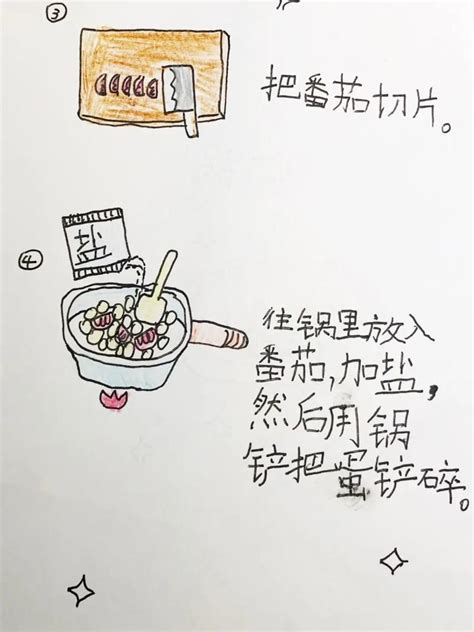 ③
把番茄切片。
盐
④
往锅里放入
番茄,加盐,
然后用锅
铲把蛋铲碎。